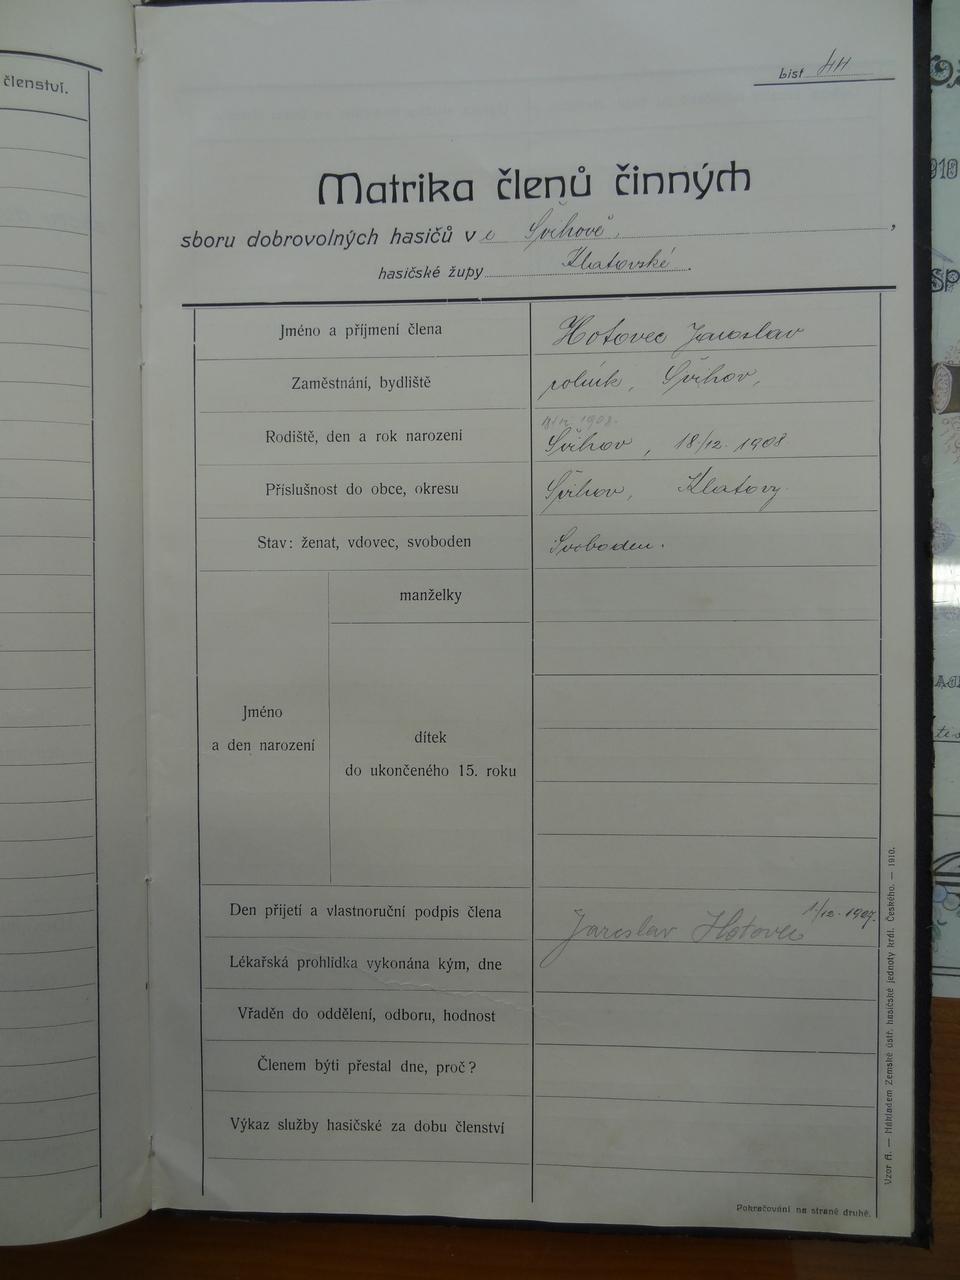 členství.
List 44
Matrika členů činných
sboru dobrovolných hasičů v e Švihově,
hasičské župy Klatovské.
Jméno a příjmení člena Hotovec Jaroslav
Zaměstnání, bydliště rolník, Švihov,
Rodiště, den a rok narození Švihov, 18/12. 1908
Příslušnost do obce, okresu Švihov, Klatovy.
Stav: ženat, vdovec, svoboden Svoboden.
Jméno
a den narození
manželky
dítek
do ukončeného 15. roku
Den přijetí a vlastnoruční podpis člena Jaroslav Hotovec 1/12. 1927.
Lékařská prohlídka vykonána kým, dne
Vřaděn do oddělení, odboru, hodnost
Členem býti přestal dne, proč?
Výkaz služby hasičské za dobu členství
Pokračování na straně druhé.
Vzor A. — Nákladem Zemské ústř. hasičské jednoty král. Českého. — 1910.